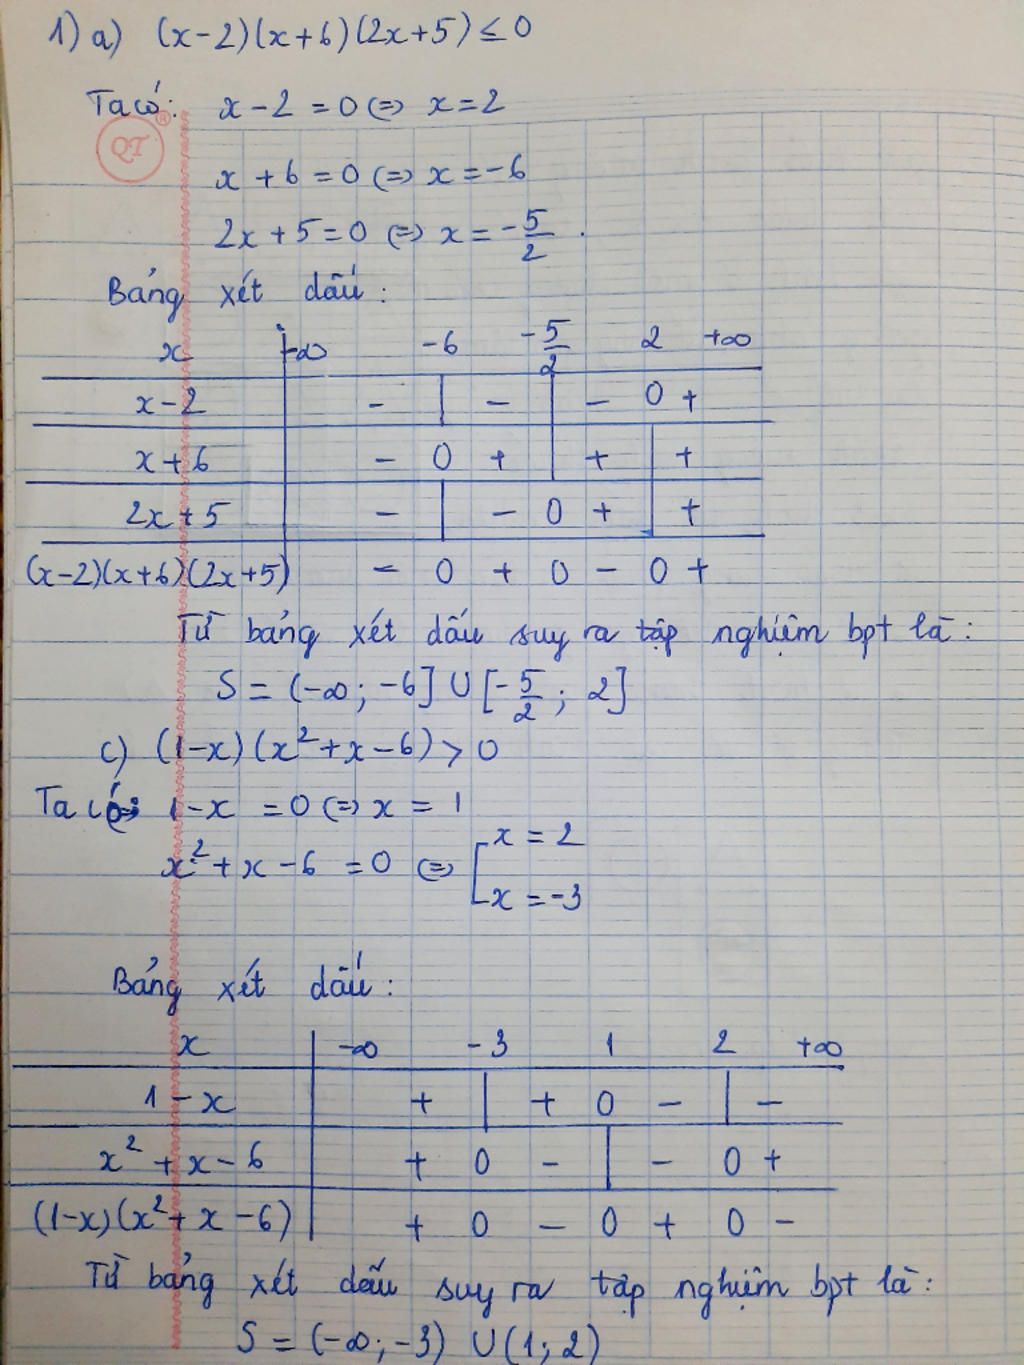 1) a) (x-2)(x+6)(2x+5) ≤ 0
Ta có: x - 2 = 0 (=) x = 2
QT ®
x + 6 = 0 (=) x = -6
2x + 5 = 0 (=) x = -5/2 .
Bảng xét dấu :
x -∞ -6 -5/2 2 +∞
x - 2 - | - | - 0 +
x + 6 - 0 + | + | +
2x + 5 - | - 0 + | +
(x-2)(x+6)(2x+5) - 0 + 0 - 0 +
Từ bảng xét dấu suy ra tập nghiệm bpt là :
S = (-∞; -6] U [-5/2; 2]
c) (1-x)(x²+x-6) > 0
Ta có: 1-x = 0 (=) x = 1
x² + x - 6 = 0 (=) [ x = 2
x = -3
Bảng xét dấu :
x -∞ -3 1 2 +∞
1 - x + | + 0 - | -
x² + x - 6 + 0 - | - 0 +
(1-x)(x²+x-6) + 0 - 0 + 0 -
Từ bảng xét dấu suy ra tập nghiệm bpt là :
S = (-∞; -3) U (1; 2)